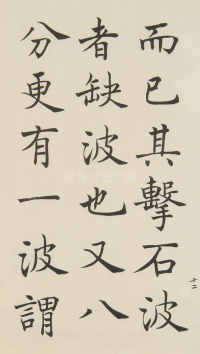 而已其擊石波
者缺波也又八
分更有一波謂
十二